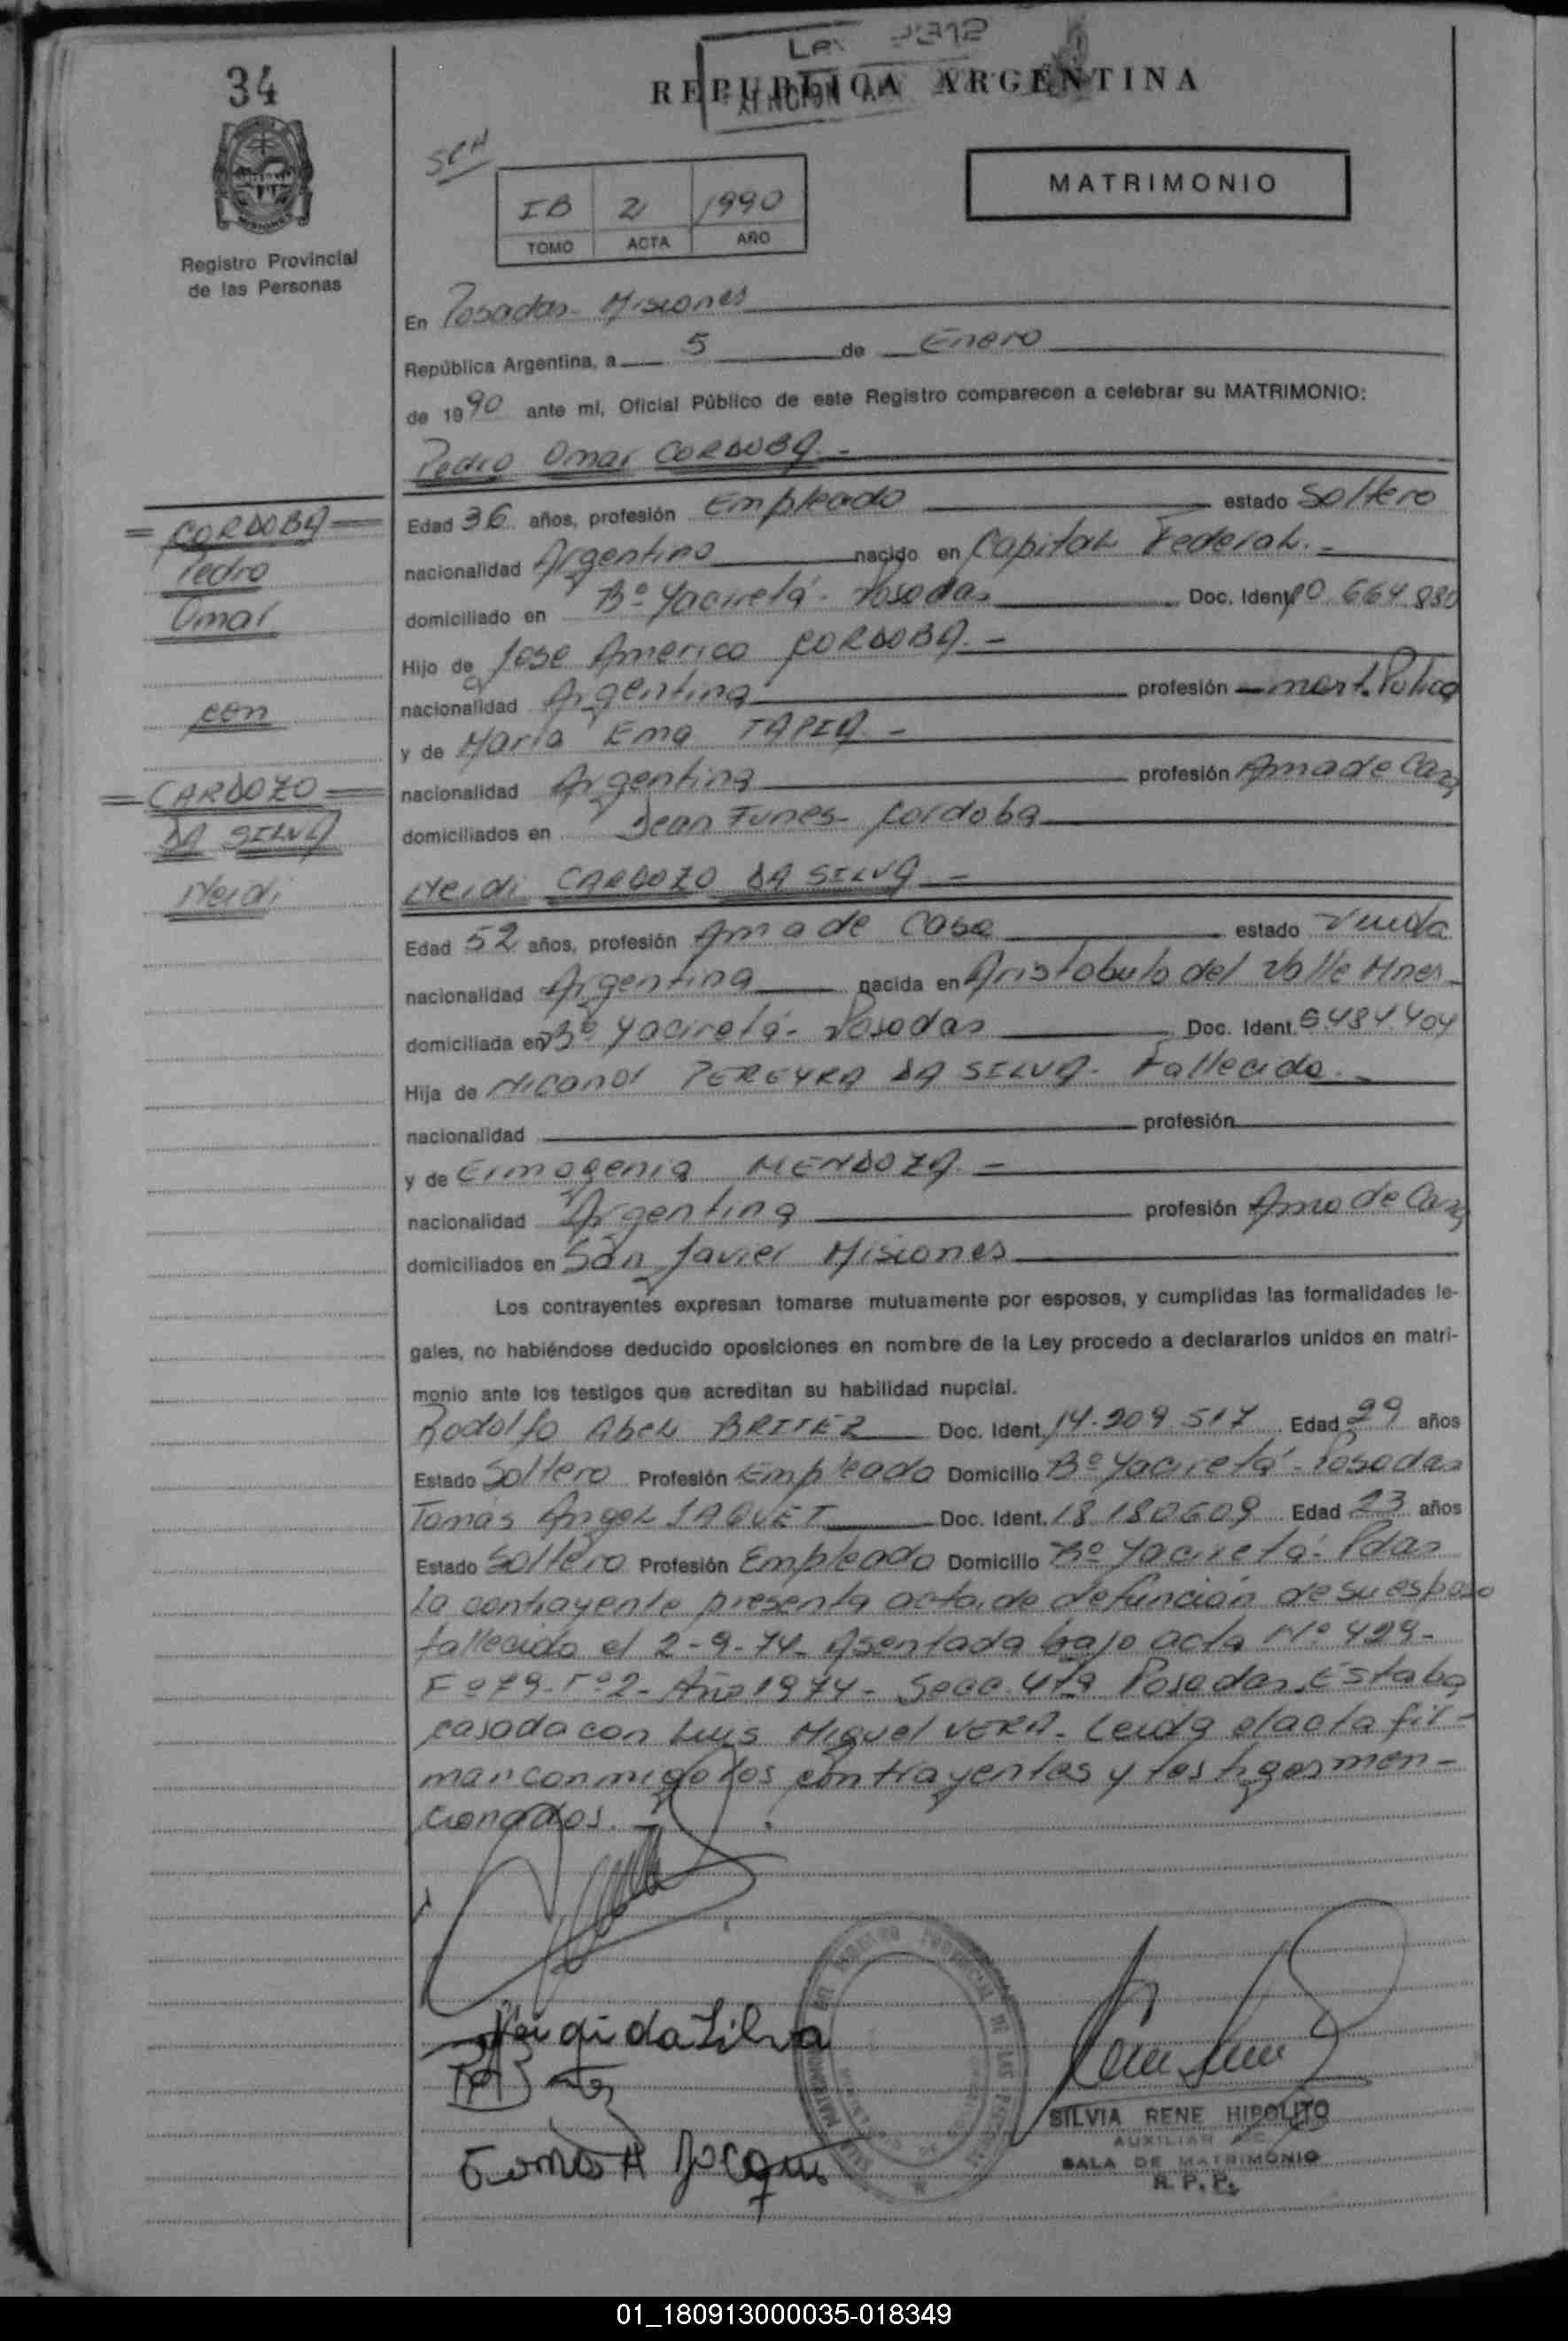 34
REPUBLICA ARGENTINA
MATRIMONIO
IB 2 1990
TOMO ACTA AÑO
Registro Provincial
de las Personas
En Posadas - Misiones
República Argentina, a 5 de Enero
de 1990 ante mí, Oficial Público de este Registro comparecen a celebrar su MATRIMONIO:
Pedro Omar CORDOBA.-
= CORDOBA =
Pedro
Omar
con
= CARDOZO =
DA SILVA
Neidi
Edad 36 años, profesión Empleado estado Soltero
nacionalidad Argentino nacido en Capital Federal.-
domiciliado en Bº Yaciretá - Posadas Doc. Ident. 10.664.830
Hijo de Jose Americo CORDOBA.-
nacionalidad Argentina profesión mart. Publico
y de Maria Ema TAPIA.-
nacionalidad Argentina profesión Ama de Casa
domiciliados en Dean Funes - Cordoba
Neidi CARDOZO DA SILVA.-
Edad 52 años, profesión Ama de Casa estado Viuda
nacionalidad Argentina nacida en Aristobulo del Valle Mnes
domiciliada en Bº Yaciretá - Posadas Doc. Ident. 6484404
Hija de Nicanor PEREYRA DA SILVA - Fallecido.-
nacionalidad profesión
y de Ermogenia MENDOZA.-
nacionalidad Argentina profesión Ama de Casa
domiciliados en San Javier Misiones
Los contrayentes expresan tomarse mutuamente por esposos, y cumplidas las formalidades le-
gales, no habiéndose deducido oposiciones en nombre de la Ley procedo a declararlos unidos en matri-
monio ante los testigos que acreditan su habilidad nupcial.
Rodolfo Abel BRITEZ Doc. Ident. 14.209.517 Edad 29 años
Estado Soltero Profesión Empleado Domicilio Bº Yaciretá - Posadas
Tomás Angel JAQUET Doc. Ident. 18.180.609 Edad 23 años
Estado Soltero Profesión Empleado Domicilio Bº Yaciretá - Pdas
La contrayente presenta acta de defunción de su esposo
fallecido el 2-9-74. Asentada bajo acta Nº 429-
Fº 79 - Tº 2 - Año 1974 - Secc. 4ta Posadas. Estaba
casada con Luis Miguel VERA. Leida el acta fir-
man conmigo los contrayentes y testigos men-
cionados.-
Neidi da Silva
SILVIA RENE HIPOLITO
AUXILIAR
SALA DE MATRIMONIO
R. P. P.
01_180913000035-018349